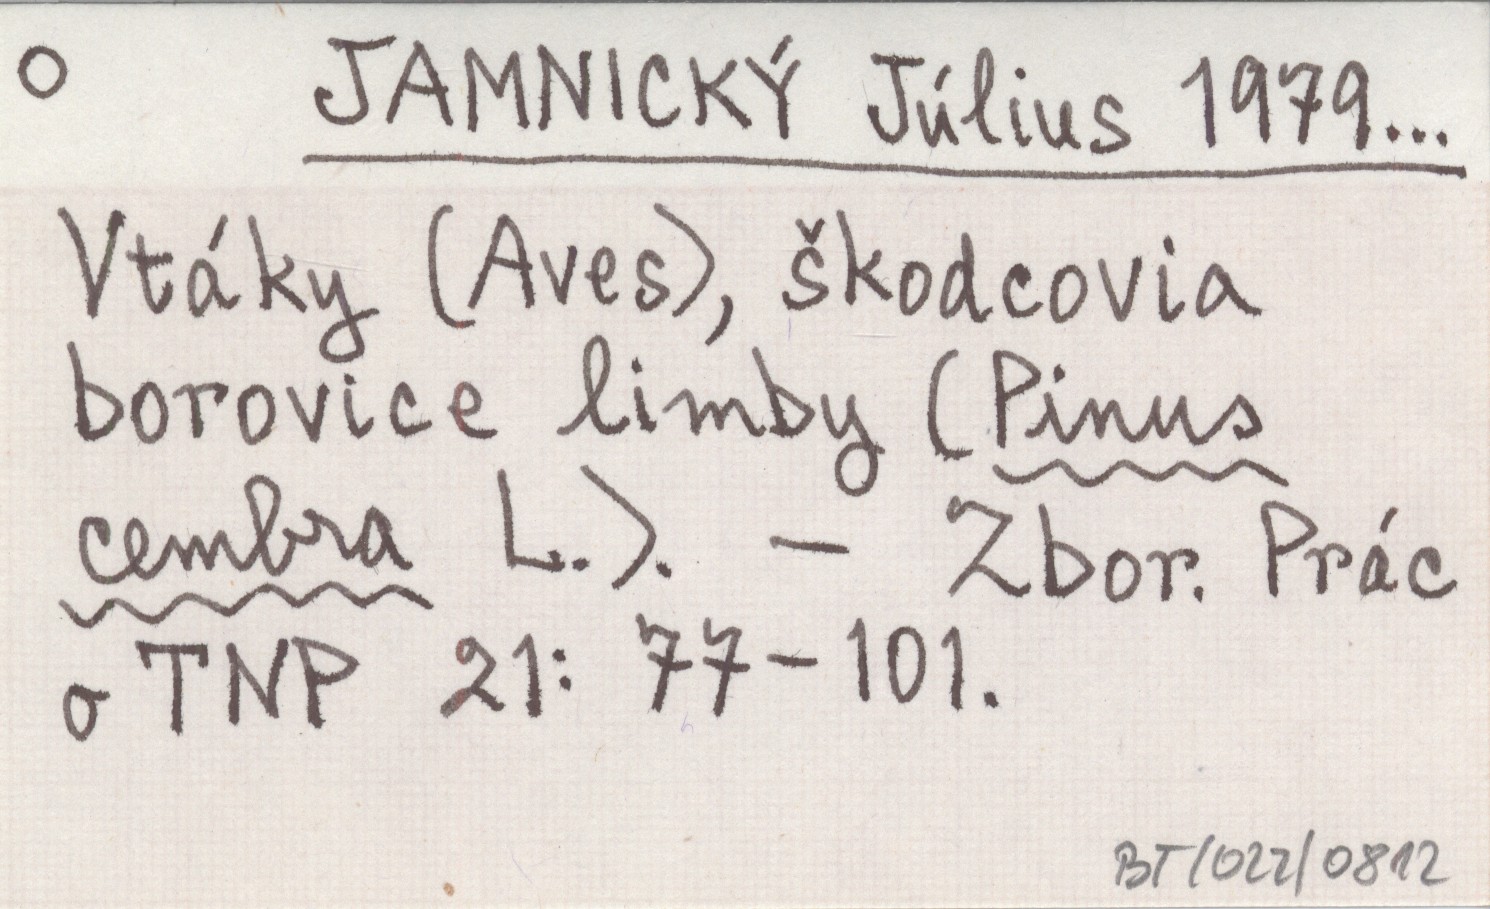 O JAMNICKÝ Július 1979...
Vtáky (Aves), škodcovia
borovice limby (Pinus
cembra L.). – Zbor. Prác
o TNP 21: 77-101.
BT/022/0812